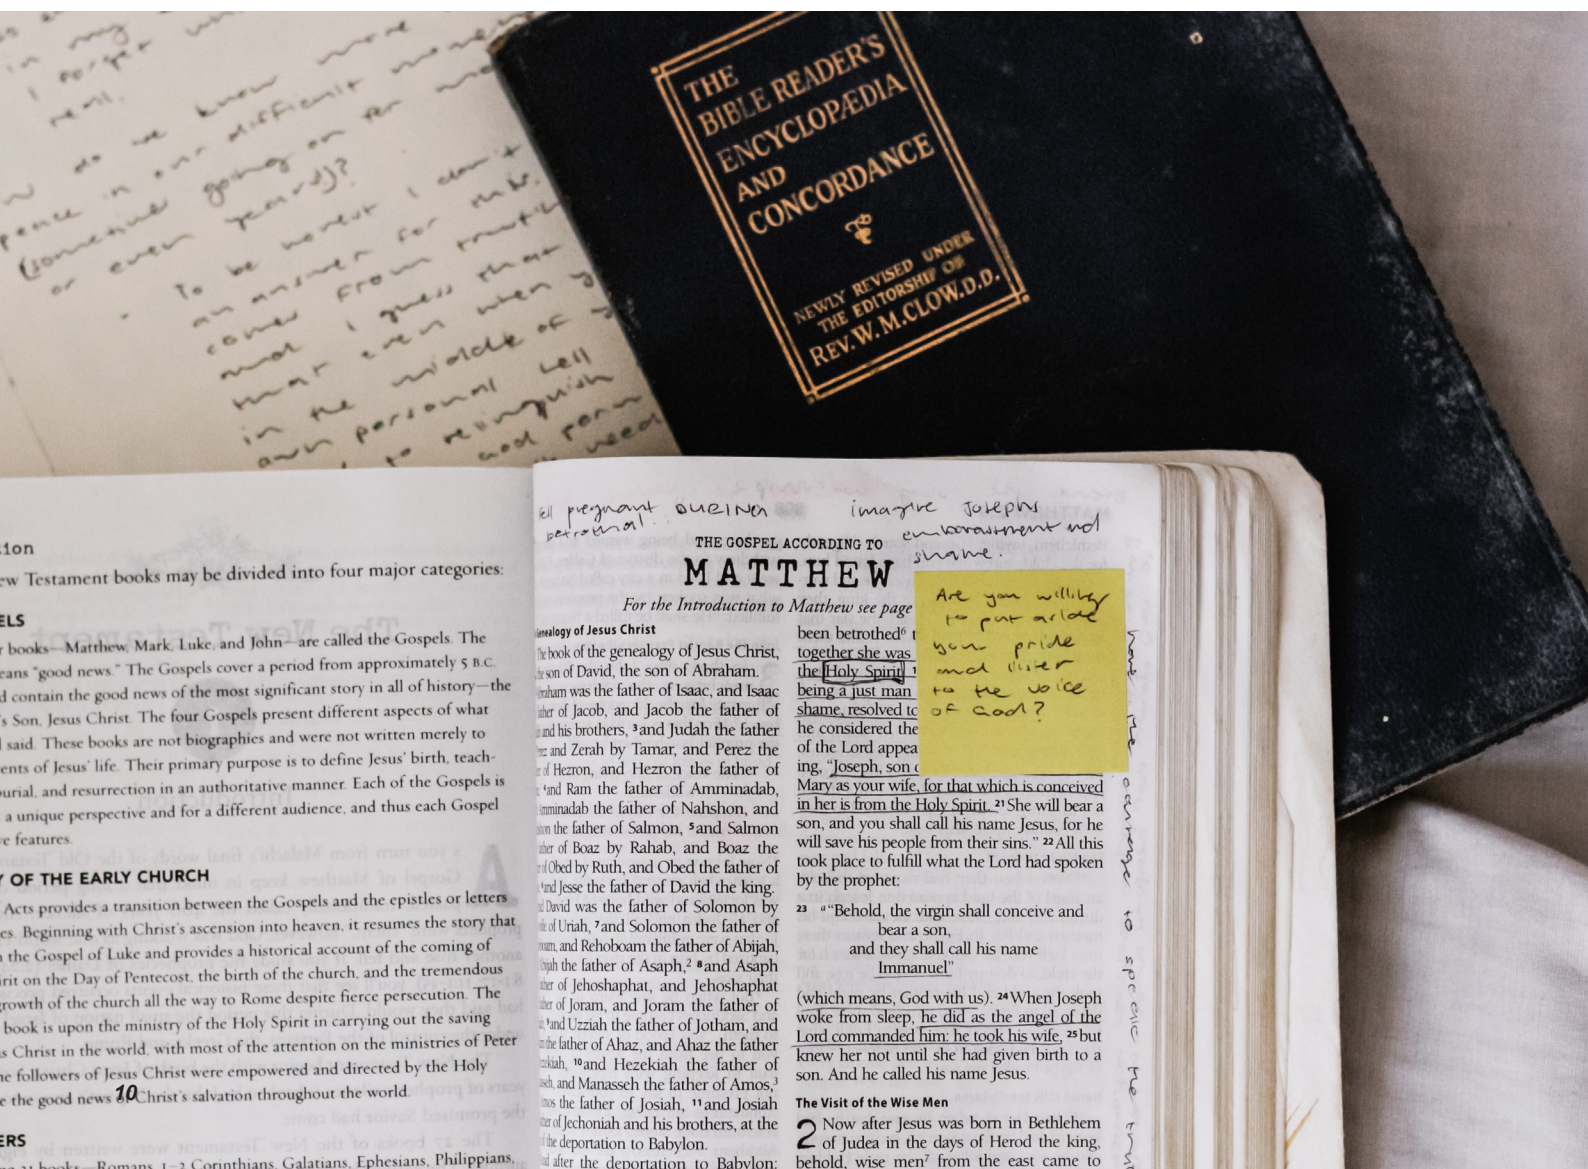 in my
I forget
real.
do we know more
peace in our difficult
(sometimes going on for
or even years)?
To be honest I don't
an answer for this.
comes from
and I guess that
that even when
in the middle of
own personal hell
to relinquish
and
need
THE
BIBLE READER'S
ENCYCLOPÆDIA
AND
CONCORDANCE
NEWLY REVISED UNDER
THE EDITORSHIP OF
REV. W. M. CLOW. D.D.
ew Testament books may be divided into four major categories:
ELS
books—Matthew, Mark, Luke, and John—are called the Gospels. The
eans "good news." The Gospels cover a period from approximately 5 B.C.
d contain the good news of the most significant story in all of history—the
's Son, Jesus Christ. The four Gospels present different aspects of what
said. These books are not biographies and were not written merely to
ents of Jesus' life. Their primary purpose is to define Jesus' birth, teach-
urial, and resurrection in an authoritative manner. Each of the Gospels is
a unique perspective and for a different audience, and thus each Gospel
e features.
Y OF THE EARLY CHURCH
Acts provides a transition between the Gospels and the epistles or letters
es. Beginning with Christ's ascension into heaven, it resumes the story that
the Gospel of Luke and provides a historical account of the coming of
irit on the Day of Pentecost, the birth of the church, and the tremendous
growth of the church all the way to Rome despite fierce persecution. The
book is upon the ministry of the Holy Spirit in carrying out the saving
s Christ in the world, with most of the attention on the ministries of Peter
he followers of Jesus Christ were empowered and directed by the Holy
e the good news of Christ's salvation throughout the world.
10
ERS
books—Romans, 1–2 Corinthians, Galatians, Ephesians, Philippians,
pregnant DURING
betrothal.
imagine Josephs
embarassment and
shame.
THE GOSPEL ACCORDING TO
MATTHEW
For the Introduction to Matthew see page
Genealogy of Jesus Christ
The book of the genealogy of Jesus Christ,
the son of David, the son of Abraham.
raham was the father of Isaac, and Isaac
ther of Jacob, and Jacob the father of
and his brothers, 3 and Judah the father
ez and Zerah by Tamar, and Perez the
r of Hezron, and Hezron the father of
4 and Ram the father of Amminadab,
mminadab the father of Nahshon, and
on the father of Salmon, 5 and Salmon
ther of Boaz by Rahab, and Boaz the
r of Obed by Ruth, and Obed the father of
6 and Jesse the father of David the king.
d David was the father of Solomon by
e of Uriah, 7 and Solomon the father of
oam, and Rehoboam the father of Abijah,
bijah the father of Asaph,2 8 and Asaph
er of Jehoshaphat, and Jehoshaphat
her of Joram, and Joram the father of
9 and Uzziah the father of Jotham, and
the father of Ahaz, and Ahaz the father
zekiah, 10 and Hezekiah the father of
seh, and Manasseh the father of Amos,3
mos the father of Josiah, 11 and Josiah
er of Jechoniah and his brothers, at the
the deportation to Babylon.
d after the deportation to Babylon:
been betrothed6
together she was
the Holy Spirit.
being a just man
shame, resolved to
he considered the
of the Lord appea
ing, "Joseph, son
Mary as your wife, for that which is conceived
in her is from the Holy Spirit. 21 She will bear a
son, and you shall call his name Jesus, for he
will save his people from their sins." 22 All this
took place to fulfill what the Lord had spoken
by the prophet:
23 a "Behold, the virgin shall conceive and
bear a son,
and they shall call his name
Immanuel"
(which means, God with us). 24 When Joseph
woke from sleep, he did as the angel of the
Lord commanded him: he took his wife, 25 but
knew her not until she had given birth to a
son. And he called his name Jesus.
The Visit of the Wise Men
2 Now after Jesus was born in Bethlehem
of Judea in the days of Herod the king,
behold, wise men7 from the east came to
Are you willing
to put aside
your pride
and listen
to the voice
of God?
have the courage to speak the